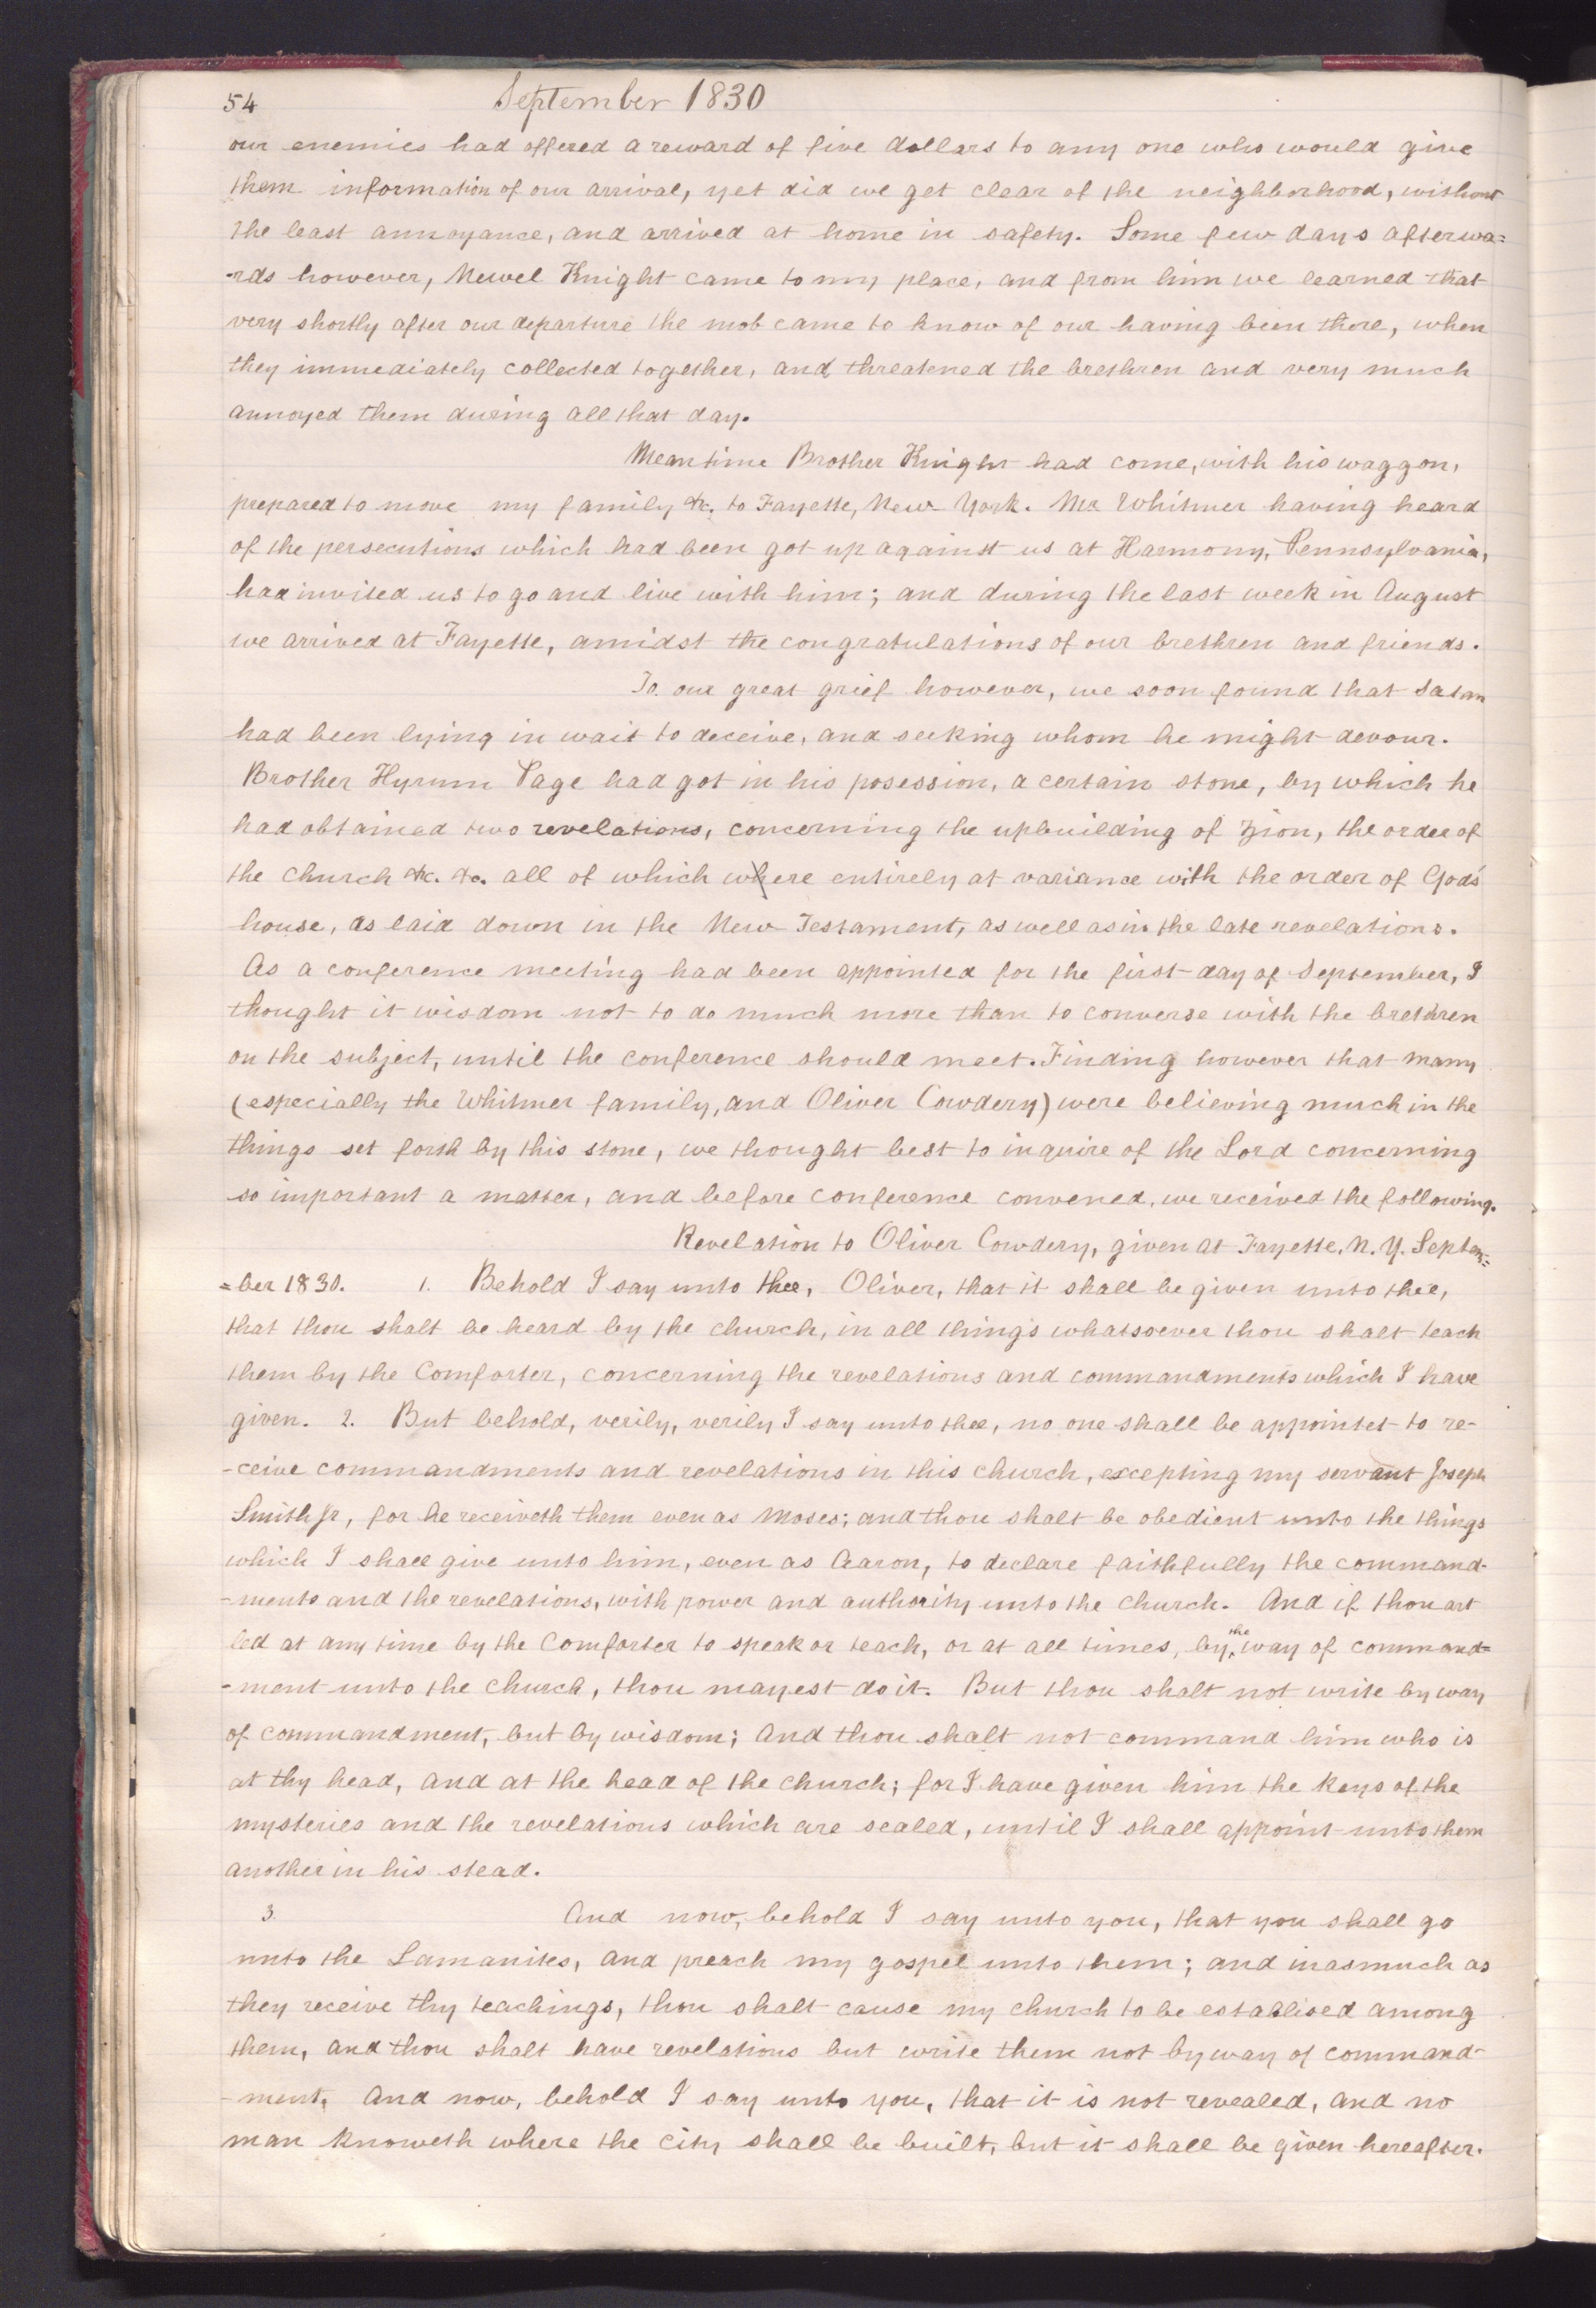 54 September 1830
our enemies had offered a reward of five dollars to any one who would give
them information of our arrival, yet did we get clear of the neighborhood, without
the least annoyance, and arrived at home in safety. Some few days afterwa=
-rds however, Newel Knight came to my place, and from him we learned that
very shortly after our departure the mob came to know of our having been there, when
they immediately collected together, and threatened the brethren and very much
annoyed them during all that day.
Meantime Brother Knight had come, with his waggon,
prepared to move my family &c. to Fayette, New York. Mr Whitmer having heard
of the persecutions which had been got up against us at Harmony, Pennsylvania,
had invited us to go and live with him; and during the last week in August
we arrived at Fayette, amidst the congratulations of our brethren and friends.
To our great grief however, we soon found that Satan
had been lying in wait to deceive, and seeking whom he might devour.
Brother Hyrum Page had got in his posession, a certain stone, by which he
had obtained two revelations, concerning the upbuilding of Zion, the order of
the church &c. &c. all of which where entirely at variance with the order of Gods
house, as laid down in the New Testament, as well as in the late revelations.
As a conference meeting had been appointed for the first day of September, I
thought it wisdom not to do much more than to converse with the brethren
on the subject, until the conference should meet. Finding however that many
(especially the Whitmer family, and Oliver Cowdery) were believing much in the
things set forth by this stone, we thought best to inquire of the Lord concerning
so important a matter, and before conference convened, we received the following.
Revelation to Oliver Cowdery, given at Fayette, N. Y. Septem=
=ber 1830. 1. Behold I say unto thee, Oliver, that it shall be given unto thee,
that thou shalt be heard by the church, in all things whatsoever thou shalt teach
them by the Comforter, concerning the revelations and commandments which I have
given. 2. But behold, verily, verily I say unto thee, no one shall be appointet to re-
-ceive commandments and revelations in this church, excepting my servant Joseph
Smith Jr, for he receiveth them even as Moses; and thou shalt be obedient unto the things
which I shall give unto him, even as Aaron, to declare faithfully the command-
-ments and the revelations, with power and authority unto the church. And if thou art
led at any time by the Comforter to speak or teach, or at all times, by the way of command=
-ment unto the church, thou mayest do it. But thou shalt not write by way
of commandment, but by wisdom; And thou shalt not command him who is
at thy head, and at the head of the church; for I have given him the keys of the
mysteries and the revelations which are sealed, until I shall appoint unto them
another in his stead.
3. And now, behold I say unto you, that you shall go
unto the Lamanites, and preach my gospel unto them; and inasmuch as
they receive thy teachings, thou shalt cause my church to be establised among
them, and thou shalt have revelations but write them not by way of command-
-ment. And now, behold I say unto you, that it is not revealed, and no
man knoweth where the city shall be built, but it shall be given hereafter.